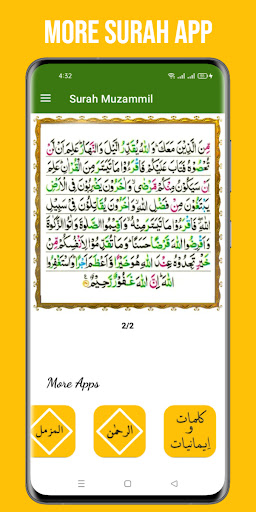 MORE SURAH APP
4:32
Surah Muzammil
مِّنَ الَّذِيْنَ مَعَكَ ؕ وَاللّٰهُ يُقَدِّرُ الَّيْلَ وَالنَّهَارَ ؕ عَلِمَ اَنْ لَّنْ
تُحْصُوْهُ فَتَابَ عَلَيْكُمْ فَاقْرَءُوْا مَا تَيَسَّرَ مِنَ الْقُرْاٰنِ ؕ عَلِمَ اَنْ
سَيَكُوْنُ مِنْكُمْ مَّرْضٰى ۙ وَاٰخَرُوْنَ يَضْرِبُوْنَ فِى الْاَرْضِ
يَبْتَغُوْنَ مِنْ فَضْلِ اللّٰهِ ۙ وَاٰخَرُوْنَ يُقَاتِلُوْنَ فِىْ سَبِيْلِ
اللّٰهِ ۖ فَاقْرَءُوْا مَا تَيَسَّرَ مِنْهُ ۙ وَاَقِيْمُوا الصَّلٰوةَ وَاٰتُوا الزَّكٰوةَ
وَاَقْرِضُوا اللّٰهَ قَرْضًا حَسَنًا ؕ وَمَا تُقَدِّمُوْا لِاَنْفُسِكُمْ مِّنْ
خَيْرٍ تَجِدُوْهُ عِنْدَ اللّٰهِ هُوَ خَيْرًا وَّاَعْظَمَ اَجْرًا ؕ وَاسْتَغْفِرُوا
اللّٰهَ ؕ اِنَّ اللّٰهَ غَفُوْرٌ رَّحِيْمٌ
2/2
More Apps
المزمل
الرحمٰن
كلمات
و
إيمانيات